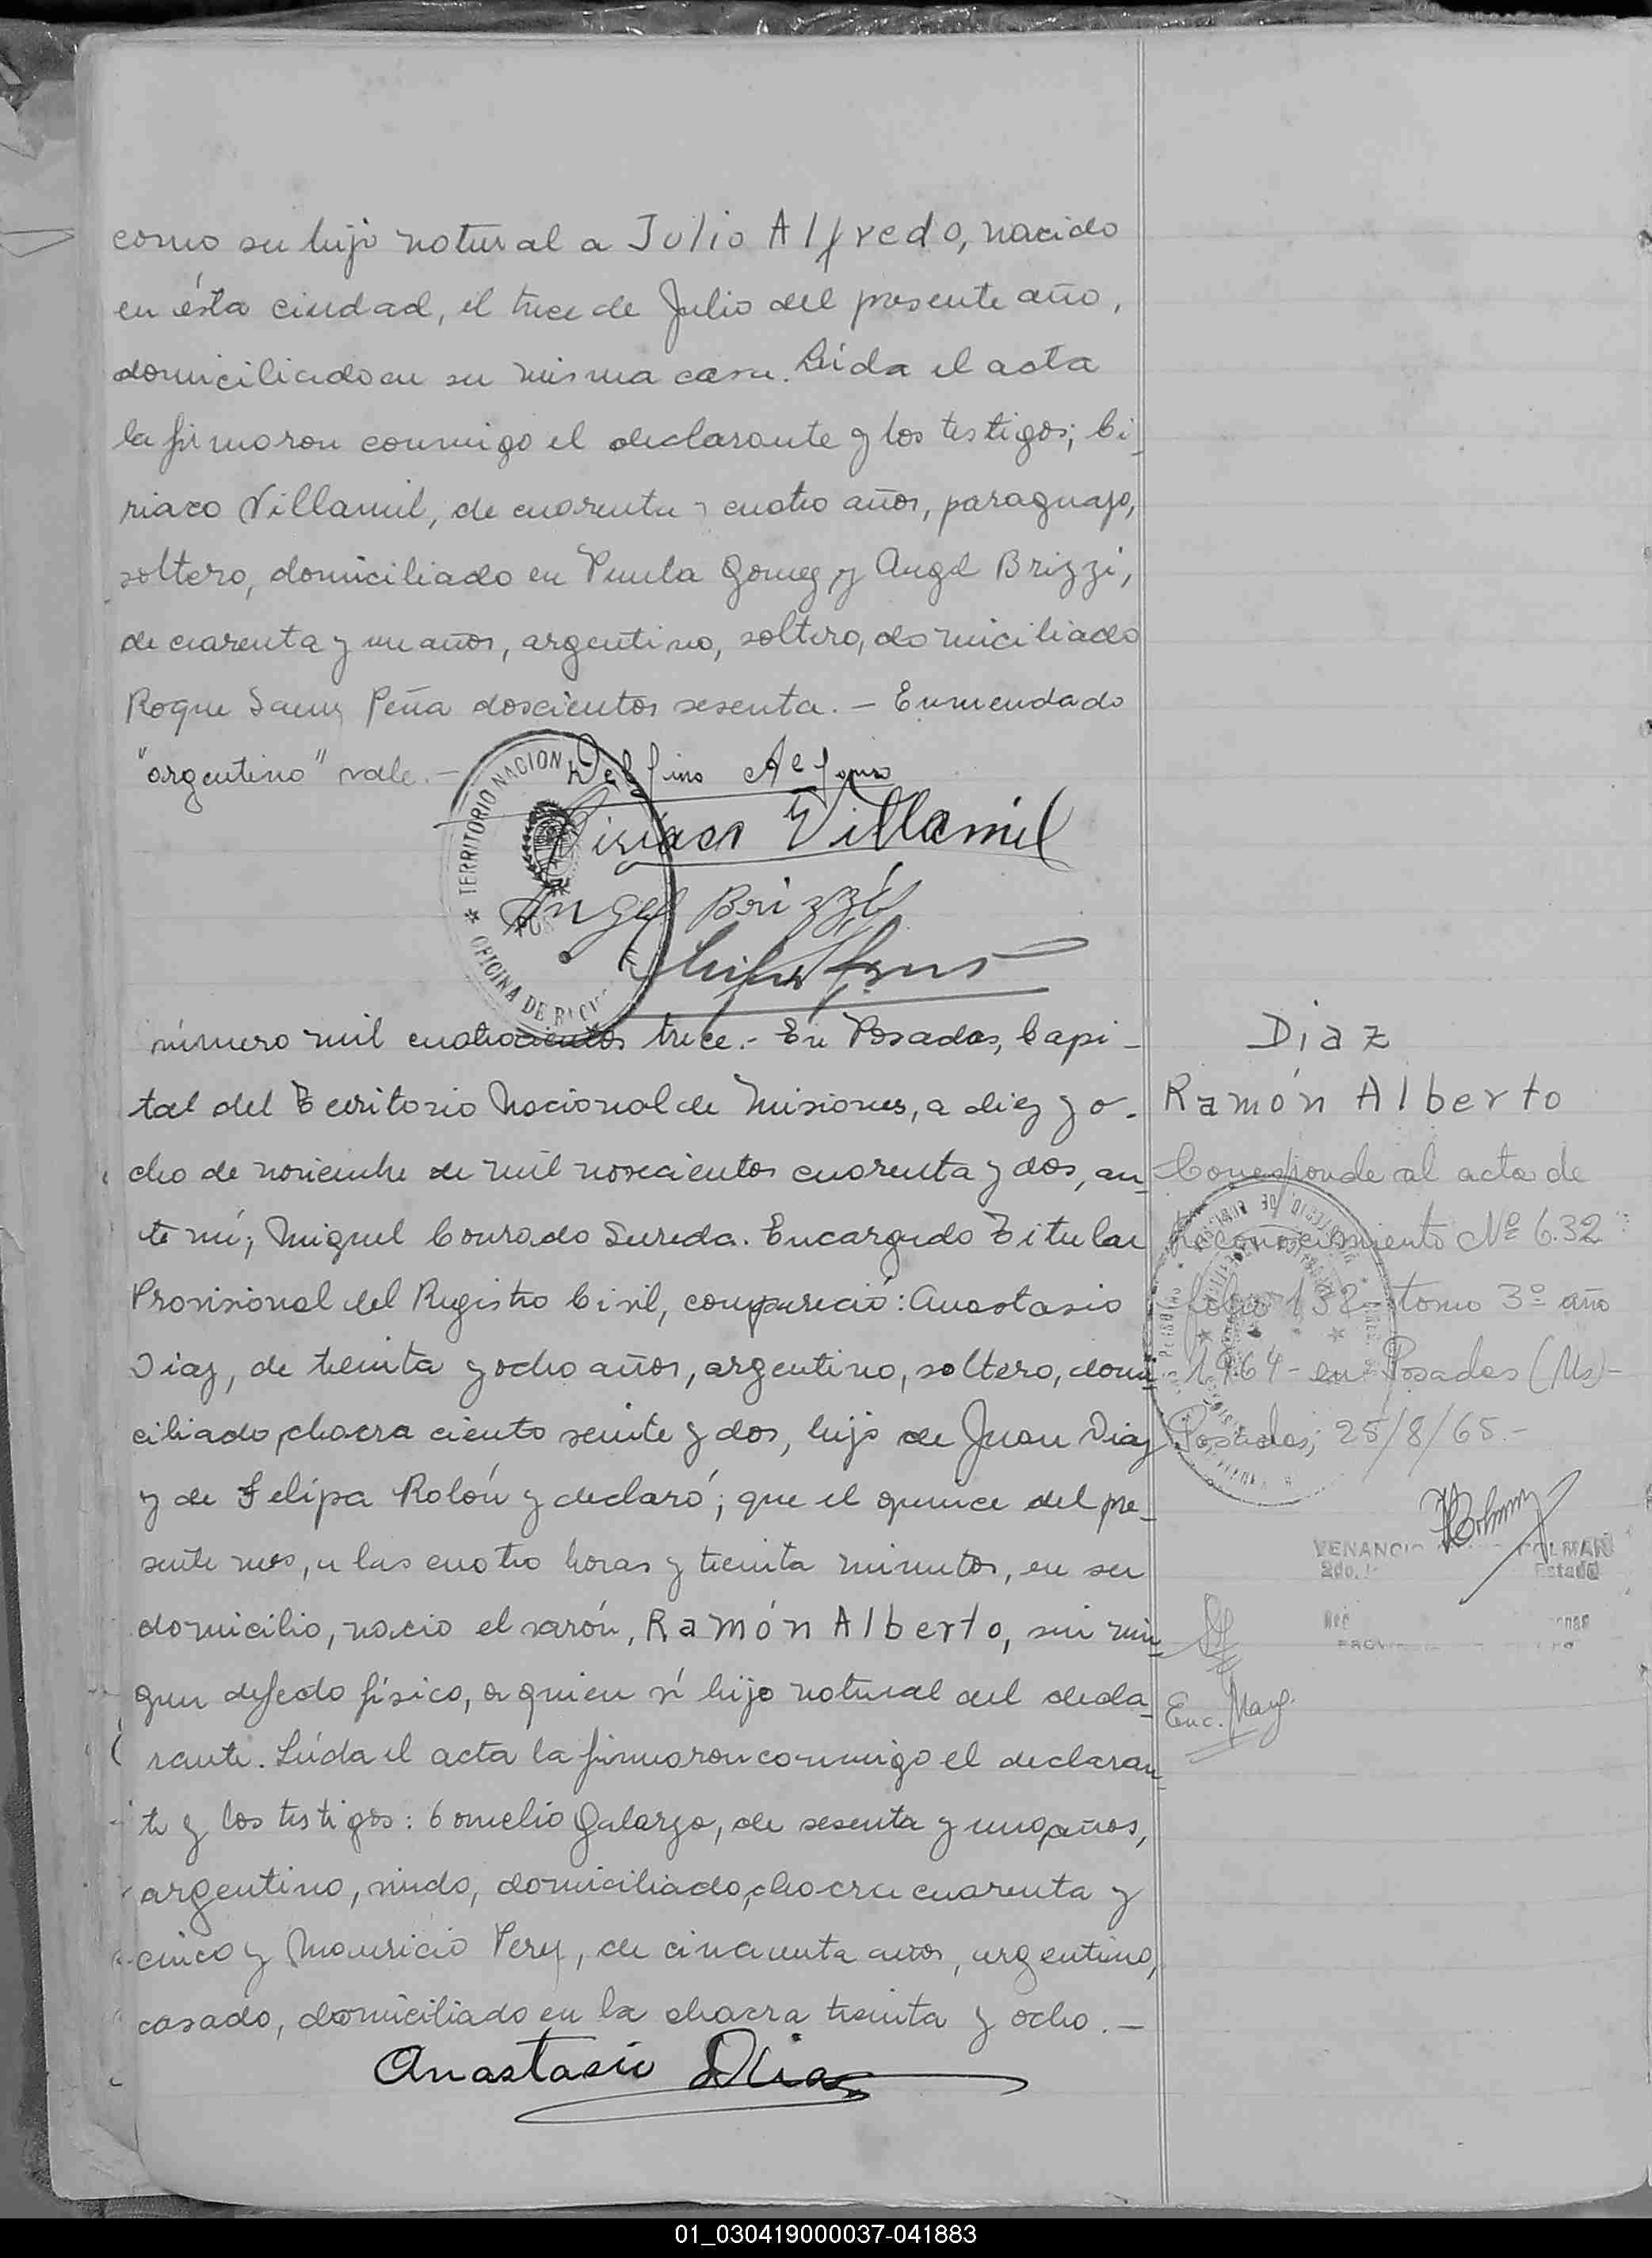 como su hijo natural a Julio Alfredo, nacido
en ésta ciudad, el trece de Julio del presente año,
domiciliado en su misma casa. Leida el acta
la firmaron conmigo el declarante y los testigos; Ci_
riaco Villamil, de cuarenta y cuatro años, paraguayo,
soltero, domiciliado en Punta Gomez y Angel Brizzi,
de cuarenta y un años, argentino, soltero, domiciliado
Roque Saenz Peña doscientos sesenta. — Enmendado
"argentino" vale. —
Delfino Alfonso
Ciriaco Villamil
Angel Brizzi
TERRITORIO NACION
OFICINA DE
número mil cuatrocientos trece.- En Posadas, Capi_
tal del Territorio Nacional de Misiones, a diez y o-
cho de noviembre de mil novecientos cuarenta y dos, an_
te mí; Miguel Conrado Sureda. Encargado Titular
Provisional del Registro Civil, compareció: Anastasio
Diaz, de treinta y ocho años, argentino, soltero, domi_
ciliado, chacra ciento veinte y dos, hijo de Juan Diaz
y de Felipa Rolón y declaró; que el quince del pre_
sente mes, a las cuatro horas y treinta minutos, en su
domicilio, nació el varón, Ramón Alberto, sin nin_
gun defecto físico, a quien ví hijo natural del decla_
rante. Leida el acta la firmaron conmigo el declaran_
te y los testigos: Cornelio Galarza, de sesenta y uno años,
argentino, viudo, domiciliado, chacra cuarenta y
cinco y Mauricio Perez, de cincuenta años, argentino,
casado, domiciliado en la chacra treinta y ocho. —
Anastasio Diaz
Diaz
Ramón Alberto
Corresponde al acta de
Reconocimiento Nº 632
folio 132 tomo 3º año
1964 - en Posadas (Ms)-
Posadas, 25/8/65.-
VENANCIO COLMAN
2do. Estado
Enc. Marg.
01_030419000037-041883